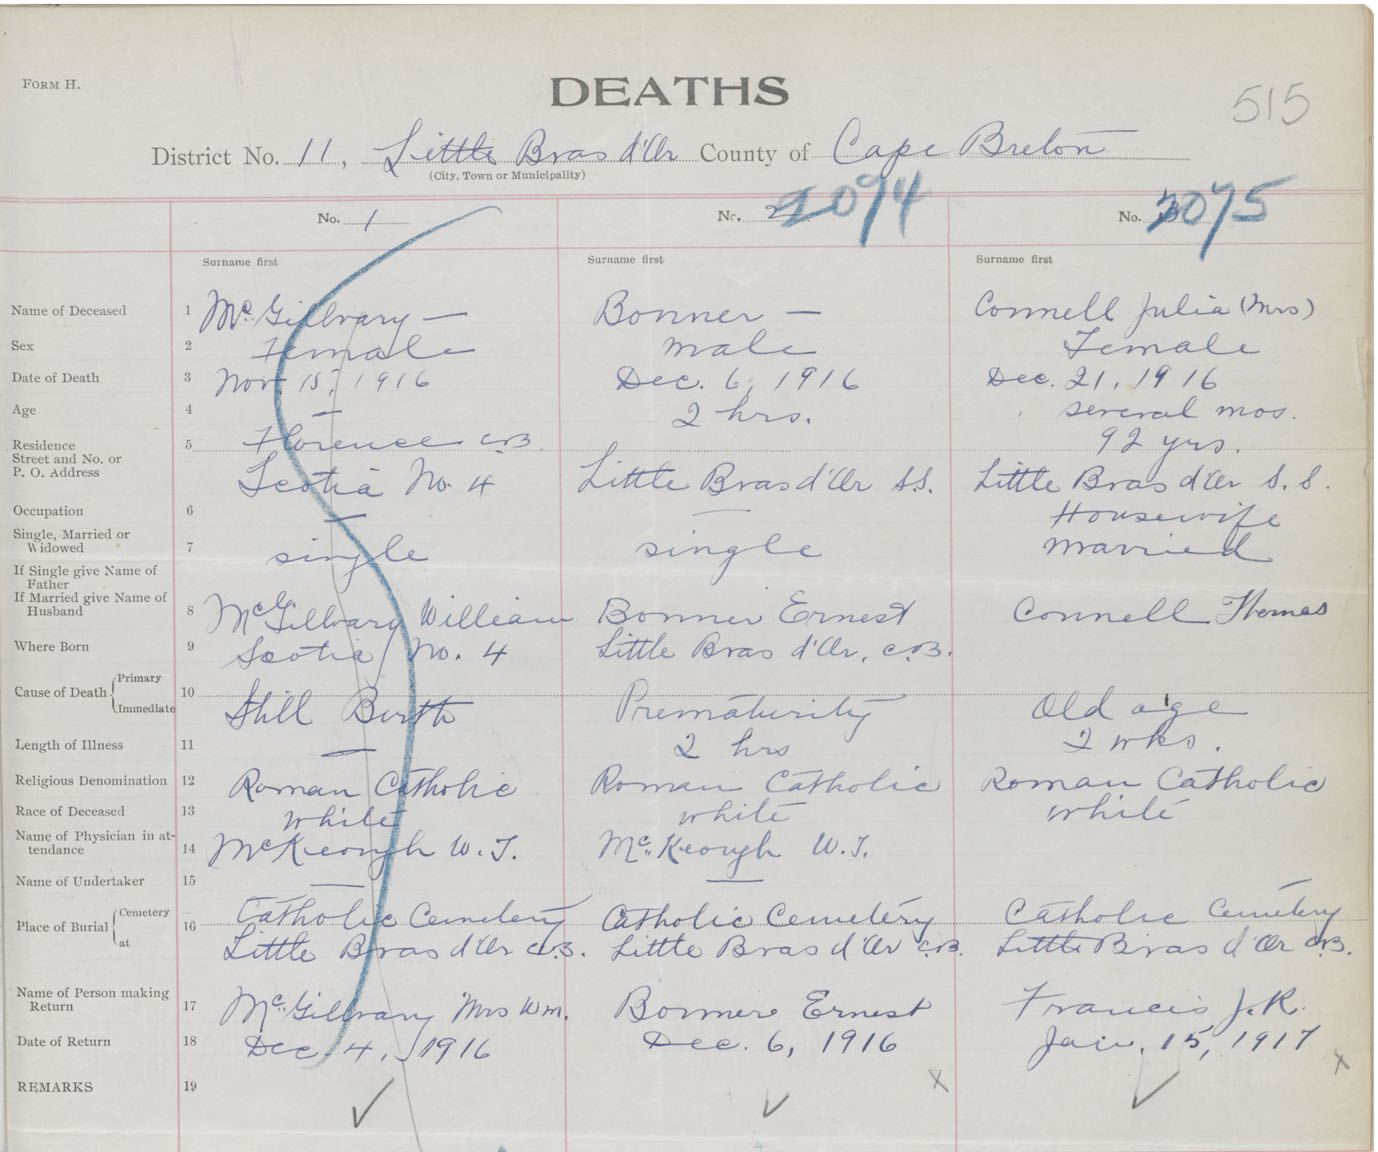 FORM H.
DEATHS
515
District No. 11, Little Bras d'Or County of Cape Breton
(City, Town or Municipality)
No. 1 No. 2 2074 No. 2075
Surname first Surname first Surname first
Name of Deceased 1 McGillvary — Bonner — Connell Julia (Mrs)
Sex 2 Female male Female
Date of Death 3 Nov 15, 1916 Dec. 6, 1916 Dec. 21, 1916
Age 4 — 2 hrs. several mos.
92 yrs.
Residence 5 Florence C.B.
Street and No. or
P. O. Address Scotia No. 4 Little Bras d'Or S.S. Little Bras d'Or S.S.
Occupation 6 — — Housewife
Single, Married or
Widowed 7 single single married
If Single give Name of
Father
If Married give Name of
Husband 8 McGillvary William Bonner Ernest Connell Thomas
Where Born 9 Scotia No. 4 Little Bras d'Or, C.B.
Cause of Death { Primary
Immediate 10 Still Birth Prematurity Old age
Length of Illness 11 — 2 hrs 2 wks.
Religious Denomination 12 Roman Catholic Roman Catholic Roman Catholic
Race of Deceased 13 white white white
Name of Physician in at-
tendance 14 McKeough W. J. McKeough W. J.
Name of Undertaker 15 — —
Place of Burial { Cemetery 16 Catholic Cemetery Catholic Cemetery Catholic Cemetery
at Little Bras d'Or C.B. Little Bras d'Or C.B. Little Bras d'Or C.B.
Name of Person making
Return 17 McGillvary Mrs Wm. Bonner Ernest Francis J.R.
Date of Return 18 Dec. 4, 1916 Dec. 6, 1916 Jan. 15, 1917
REMARKS 19